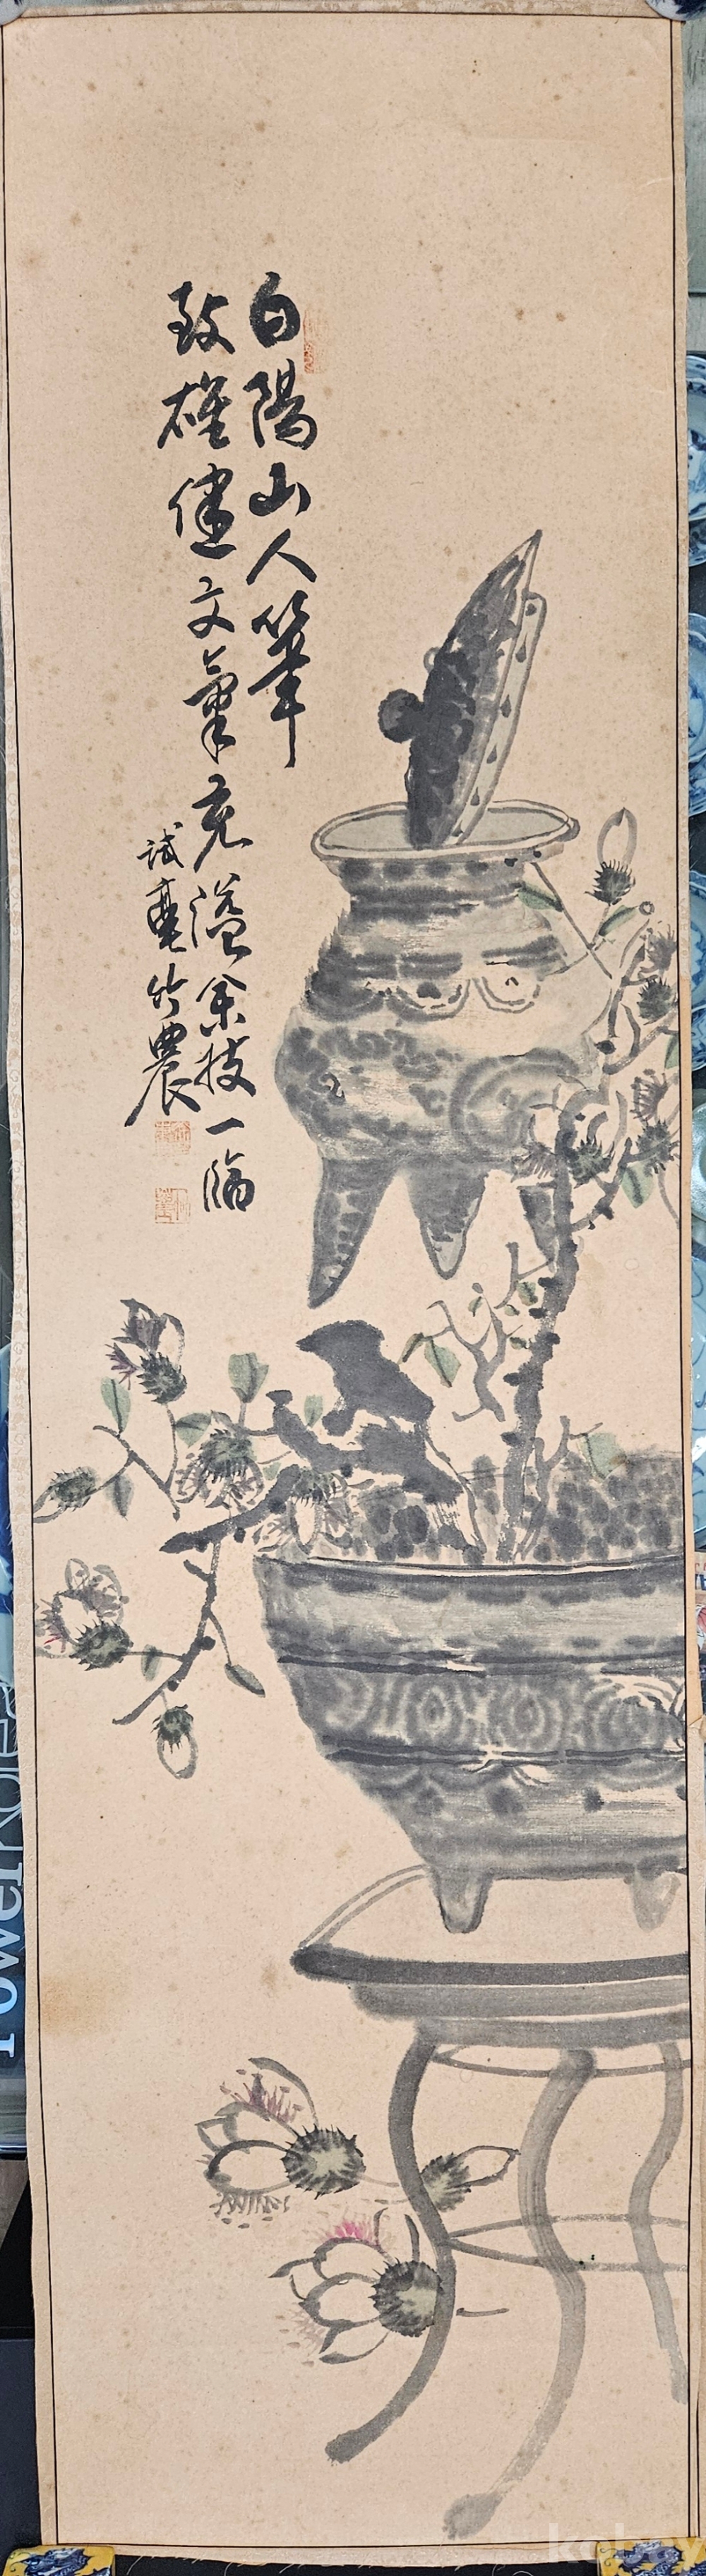 白陽山人筆
致雄健文氣充溢余技一臨
試毫竹農
PowerRules
kobay